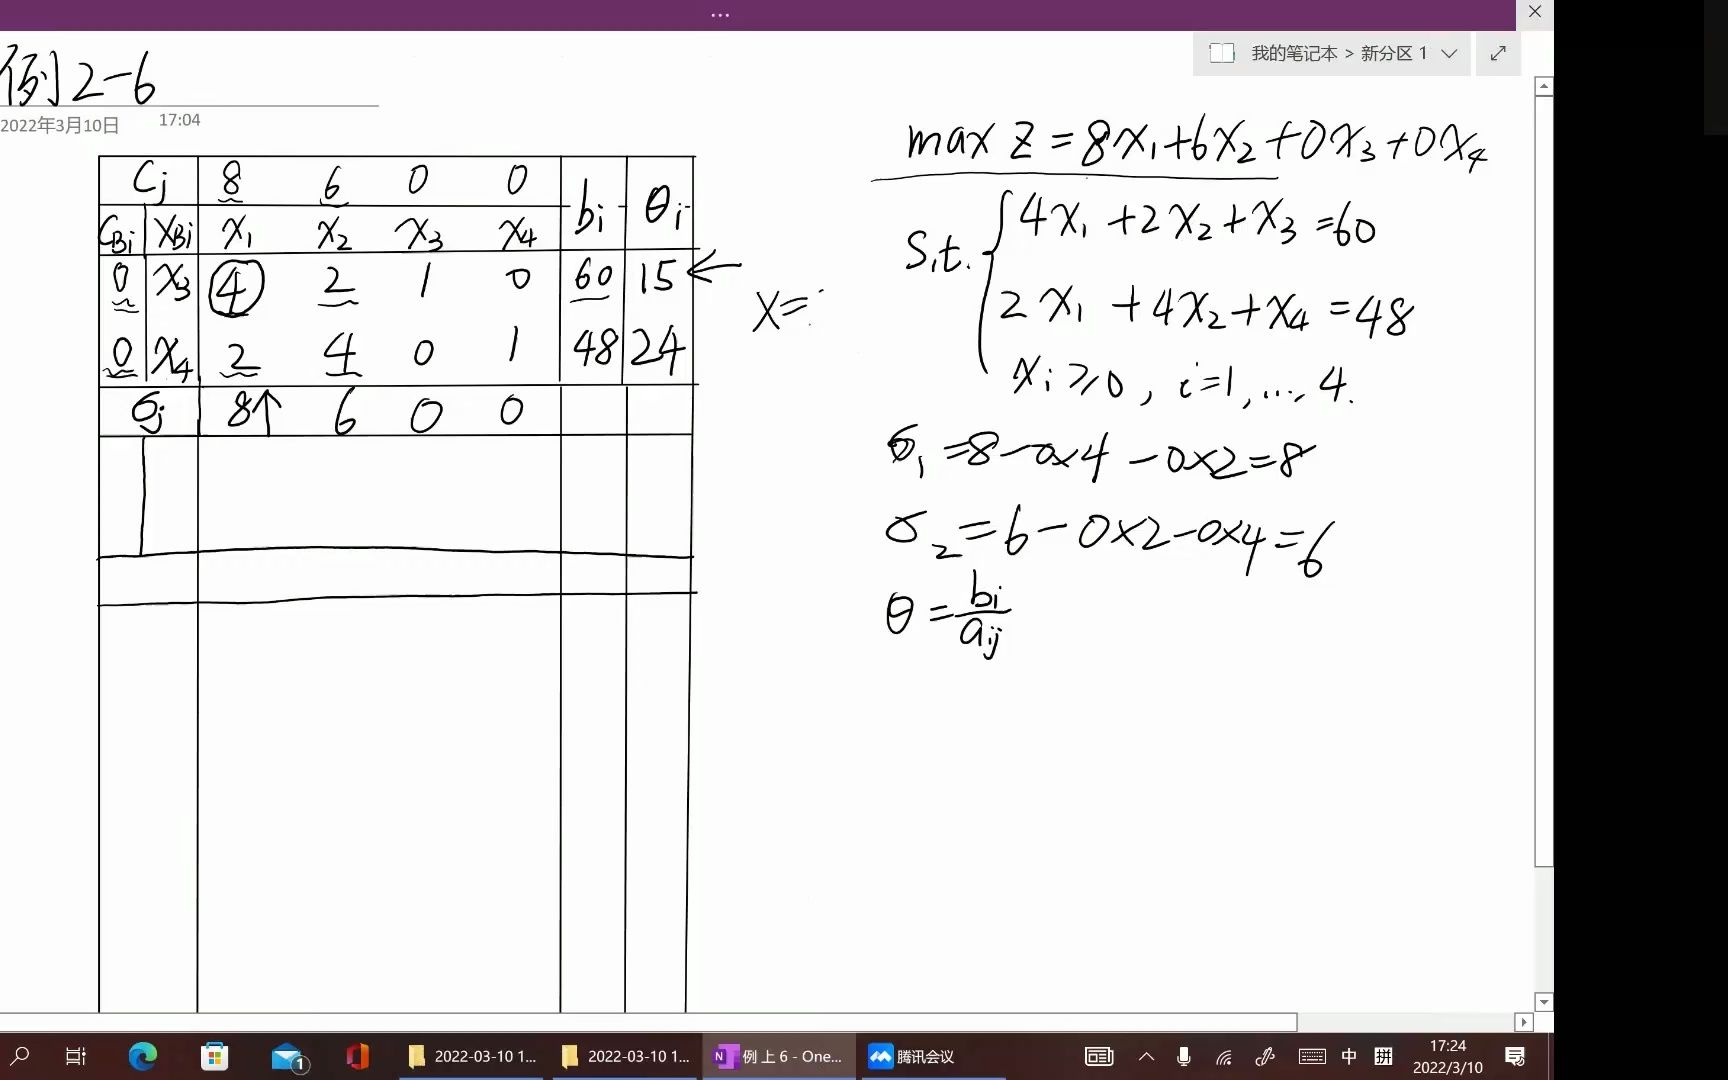 …
我的笔记本 > 新分区 1
例2-6
2022年3月10日 17:04
Cj 8 6 0 0 bi θi
CBi XBi x₁ x₂ x₃ x₄
0 x₃ 4 2 1 0 60 15 ←
0 x₄ 2 4 0 1 48 24
σj 8↑ 6 0 0
X=
max Z = 8x₁+6x₂+0x₃+0x₄
s.t. { 4x₁+2x₂+x₃=60
2x₁+4x₂+x₄=48
xi≥0, i=1,…,4.
σ₁=8-0×4-0×2=8
σ₂=6-0×2-0×4=6
θ=bi/aij
2022-03-10 1... 2022-03-10 1... 例上6 - One... 腾讯会议 中 拼 17:24
1 2022/3/10